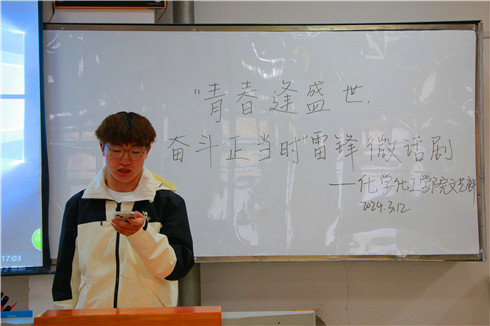 "青春逢盛世,
奋斗正当时"雷锋微话剧
——化学化工学院文艺部
2024.3.12
17:03